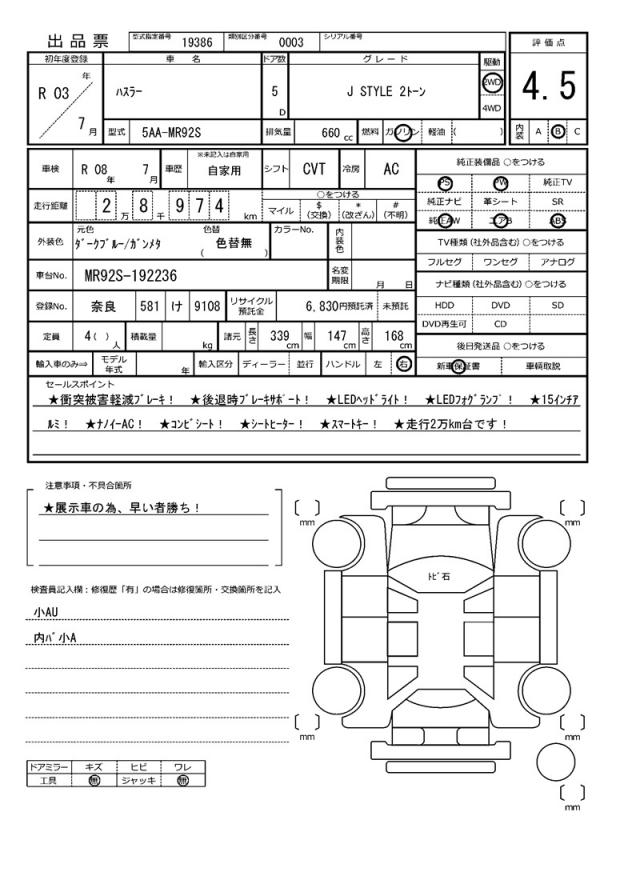 出品票
型式指定番号 19386 類別区分番号 0003 シリアル番号
評価点
4.5
内装 A B C
初年度登録 車名 ドア数 グレード 駆動
R 03 年 7 月
ﾊｽﾗｰ
5 D
J STYLE 2ﾄｰﾝ
2WD
4WD
型式 5AA-MR92S 排気量 660 cc 燃料 ガソリン 軽油 ( )
車検 R 08 年 7 月 車歴 ※未記入は自家用 自家用 シフト CVT 冷房 AC
走行距離 2 万 8 千 9 7 4 km
○をつける
マイル $ (交換) * (改ざん) # (不明)
外装色 元色 ﾀﾞｰｸﾌﾞﾙｰ/ｶﾞﾝﾒﾀ 色替 ( 色替無 ) カラーNo. 内装色
車台No. MR92S-192236 名変期限 月 日
登録No. 奈良 581 け 9108 リサイクル預託金 6,830円預託済 未預託
定員 4( ) 人 積載量 kg 諸元 長さ 339 cm 幅 147 cm 高さ 168 cm
輸入車のみ⇒ モデル年式 年 輸入区分 ディーラー 並行 ハンドル 左 右
純正装備品 ○をつける
PS PW 純正TV
純正ナビ 革シート SR
純正AW エアB ABS
TV種類 (社外品含む) ○をつける
フルセグ ワンセグ アナログ
ナビ種類 (社外品含む) ○をつける
HDD DVD SD
DVD再生可 CD
後日発送品 ○をつける
新車保証書 車輌取説
セールスポイント
★衝突被害軽減ﾌﾞﾚｰｷ！ ★後退時ﾌﾞﾚｰｷｻﾎﾟｰﾄ！ ★LEDﾍｯﾄﾞﾗｲﾄ！ ★LEDﾌｫｸﾞﾗﾝﾌﾟ！ ★15ｲﾝﾁｱ
ﾙﾐ！ ★ﾅﾉｲｰAC！ ★ｺﾝﾋﾞｼｰﾄ！ ★ｼｰﾄﾋｰﾀｰ！ ★ｽﾏｰﾄｷｰ！ ★走行2万km台です！
注意事項・不具合箇所
★展示車の為、早い者勝ち！
検査員記入欄：修復歴「有」の場合は修復箇所・交換箇所を記入
小AU
内ﾊﾞ小A
ﾄﾋﾞ石
mm
mm
mm
mm
mm
ドアミラー キズ ヒビ ワレ
工具 無 ジャッキ 無